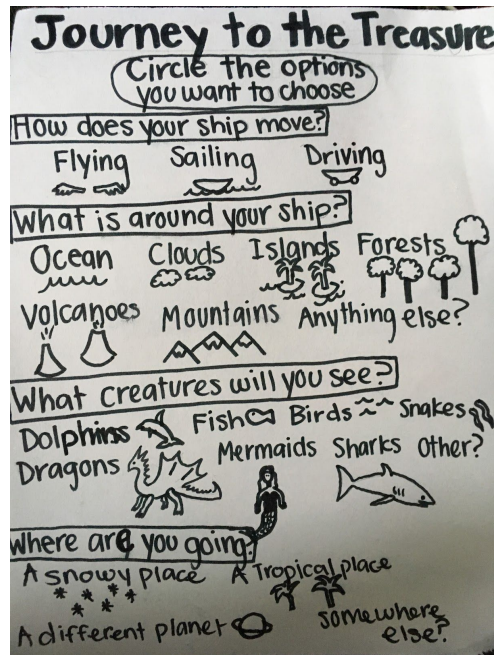 Journey to the Treasure
Circle the options
you want to choose
How does your ship move?
Flying Sailing Driving
What is around your ship?
Ocean Clouds Islands Forests
Volcanoes Mountains Anything else?
What creatures will you see?
Dolphins Fish Birds Snakes
Dragons Mermaids Sharks Other?
Where are you going?
A snowy place A Tropical place
A different planet Somewhere
else?